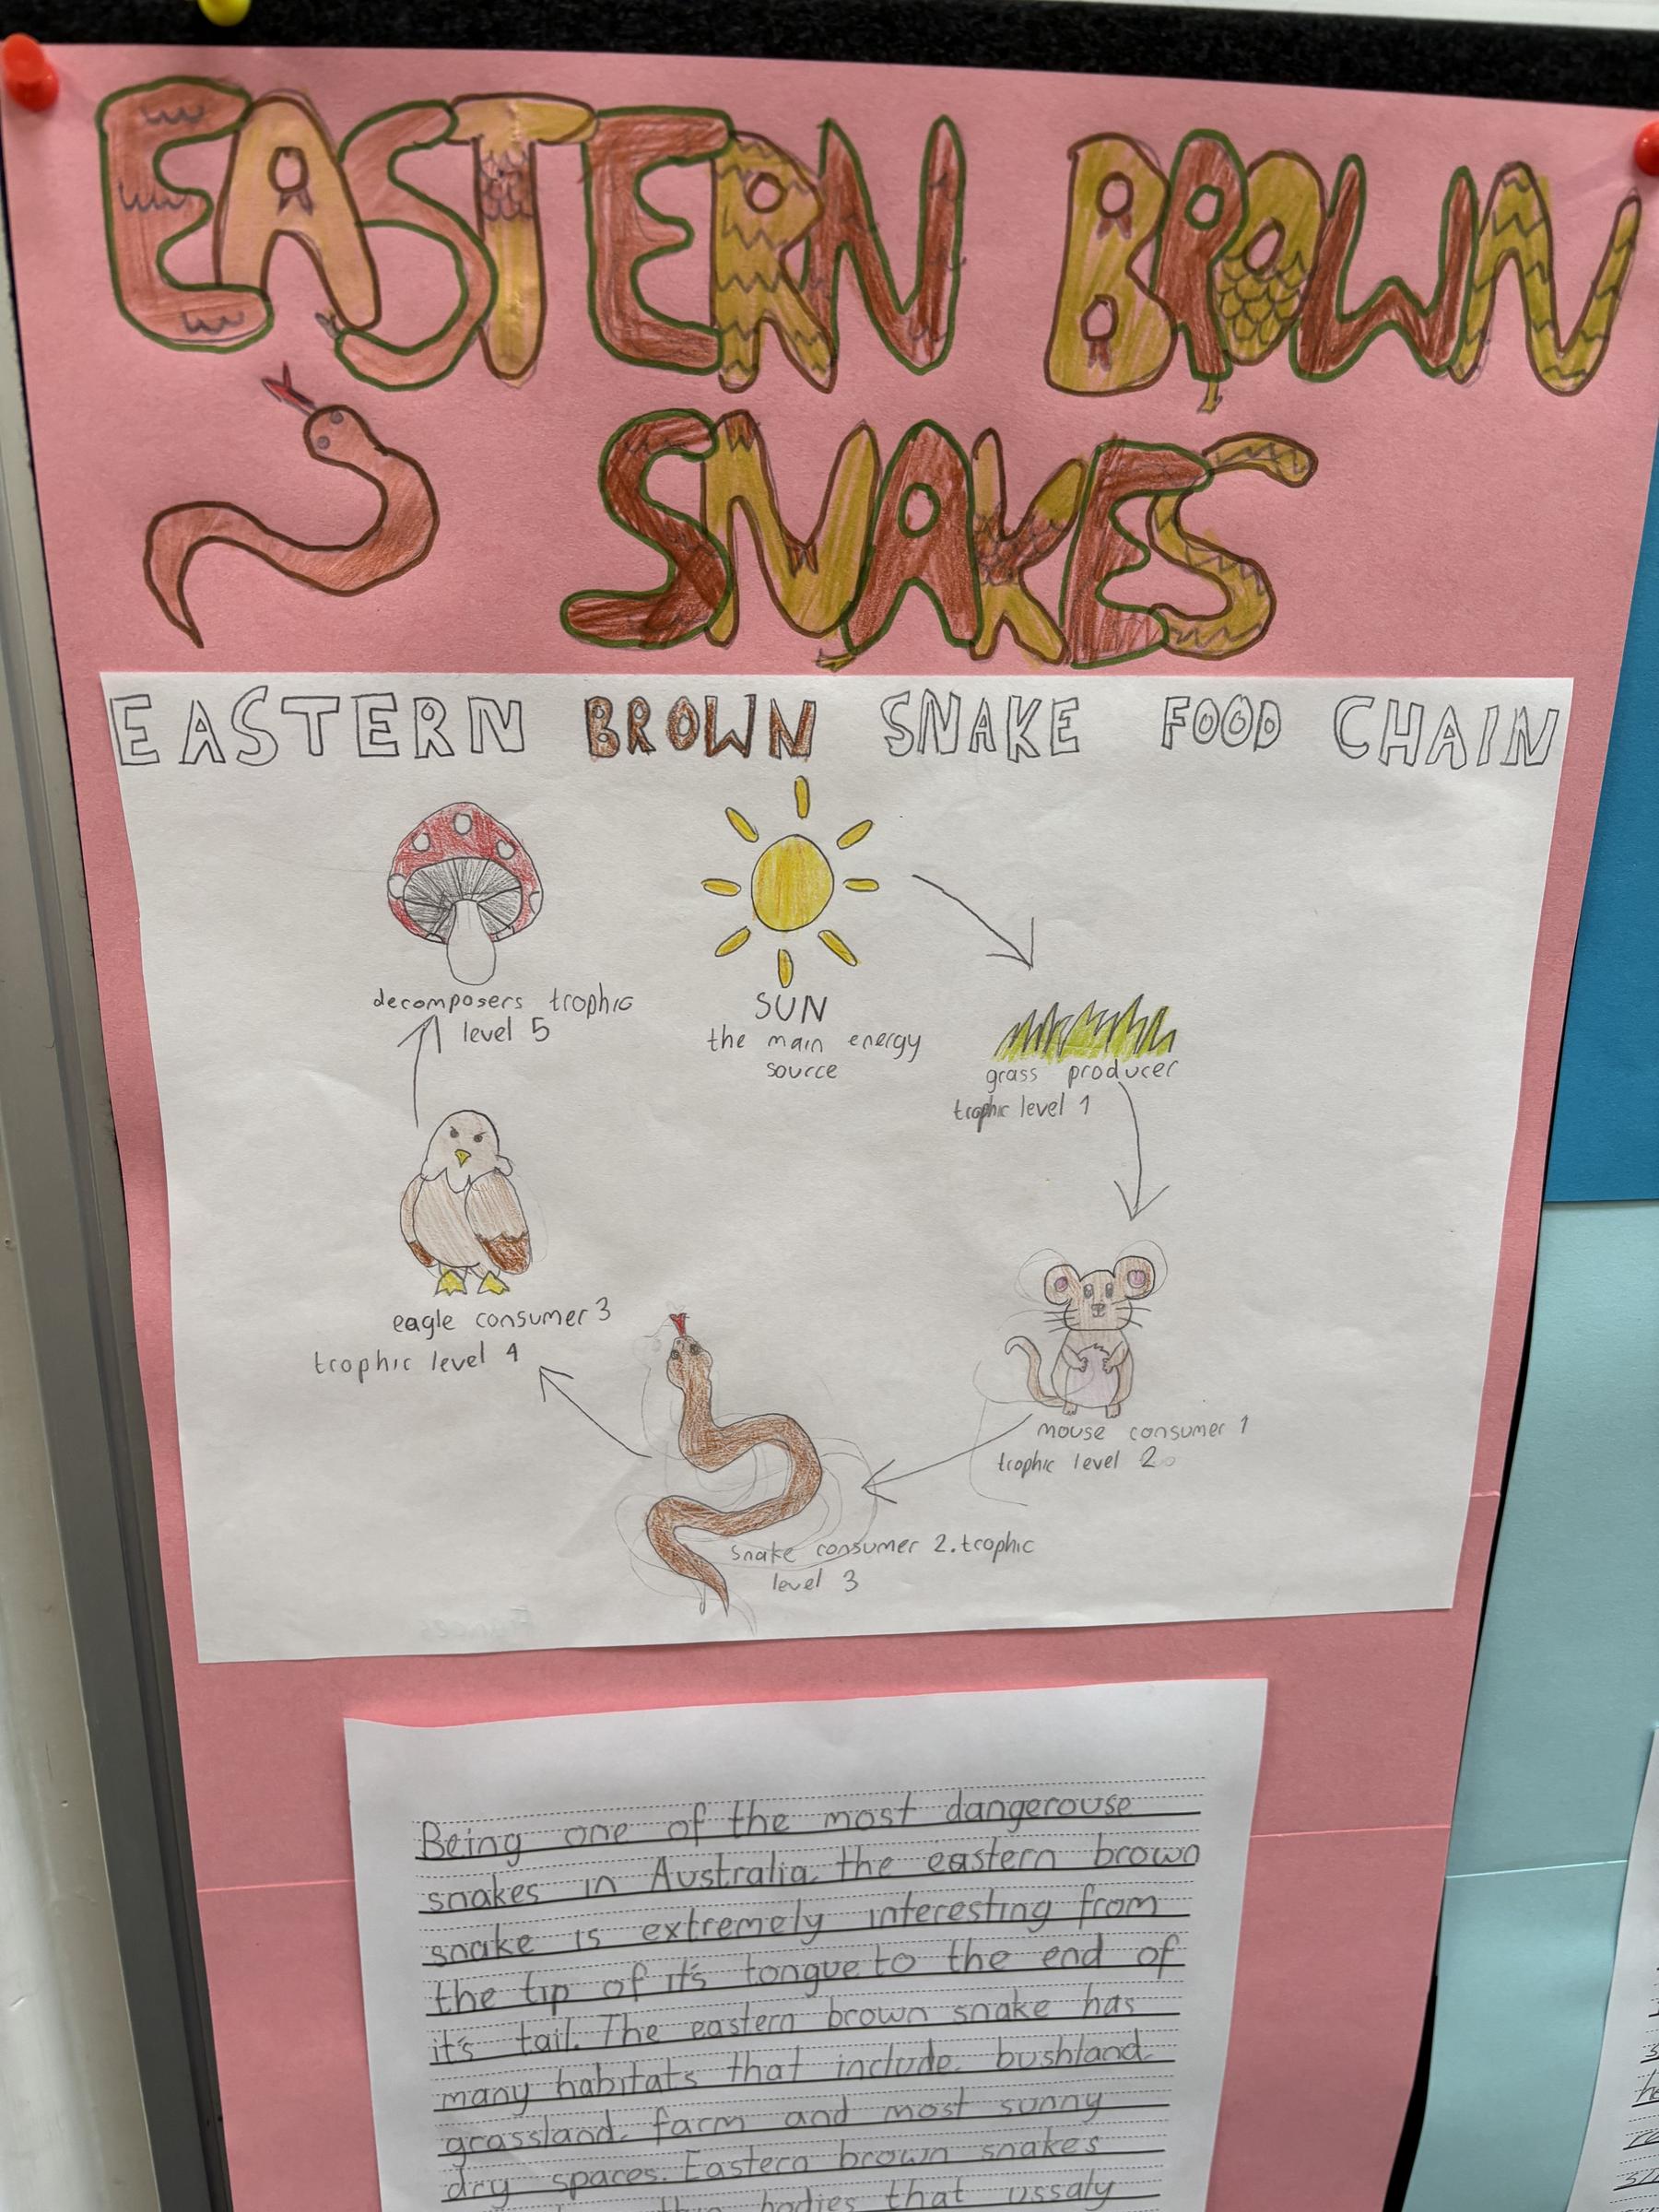 EASTERN BROWN
SNAKES
EASTERN BROWN SNAKE FOOD CHAIN
decomposers trophic
level 5
SUN
the main energy
source
grass producer
trophic level 1
eagle consumer 3
trophic level 4
mouse consumer 1
trophic level 2
snake consumer 2. trophic
level 3
Being one of the most dangerouse
snakes in Australia, the eastern brown
snake is extremely interesting from
the tip of it's tongue to the end of
it's tail. The eastern brown snake has
many habitats that include, bushland,
grassland, farm and most sunny
dry spaces. Eastern brown snakes
bodies that ussaly